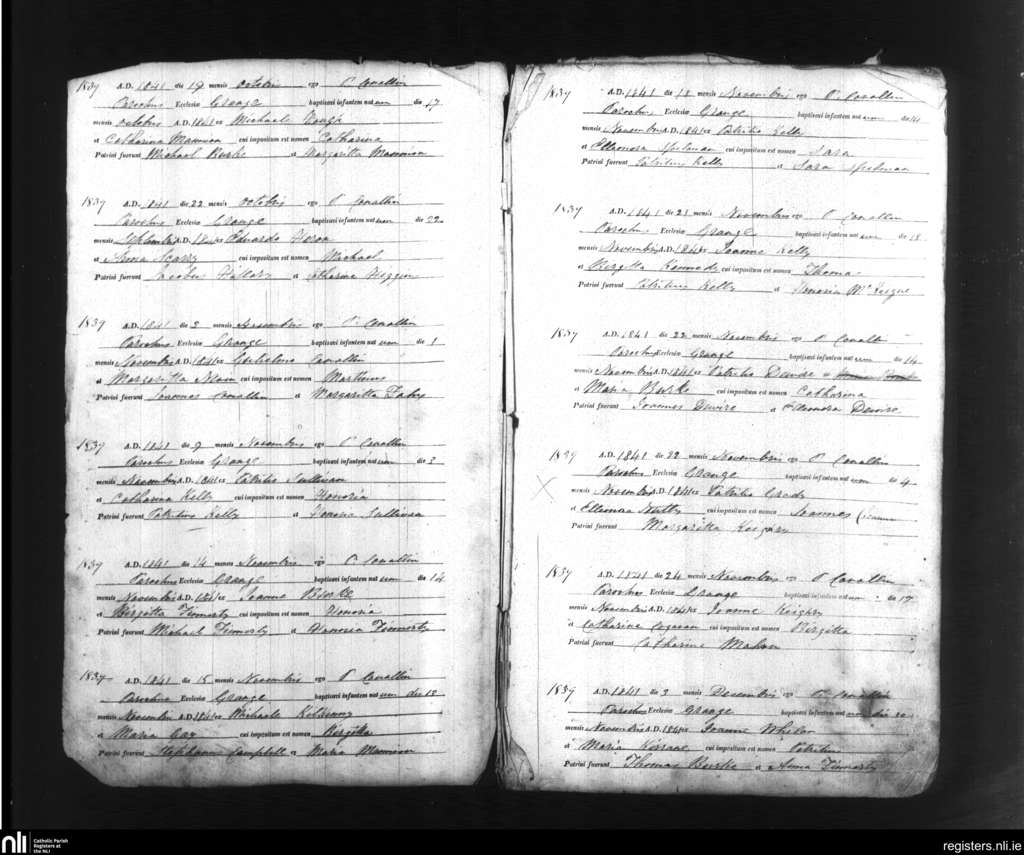 1839 A.D. 1841 die 19 mensis Octobris ego P. Conallin
Parochus Ecclesiæ Grange baptisavi infantem natum die 17
mensis Octobris A.D. 1841 ex Michaele
et Catharina Mannion cui impositum est nomen Catharina
Patrini fuerunt Michael Burke et Margaritta Mannion
1839 A.D. 1841 die 22 mensis Octobris ego P. Conallin
Parochus Ecclesiæ Grange baptisavi infantem natum die 22
mensis Septembris A.D. 1841 ex Eduardo
et Anna Scarry cui impositum est nomen Michael
Patrini fuerunt Jacobus et Catharina Higgin
1839 A.D. 1841 die 3 mensis Novembris ego P. Conallin
Parochus Ecclesiæ Grange baptisavi infantem natum die 1
mensis Novembris A.D. 1841 ex Gulielmo Conallin
et Margaritta cui impositum est nomen Martinus
Patrini fuerunt Joannes Conallin et Margaritta
1839 A.D. 1841 die 9 mensis Novembris ego P. Conallin
Parochus Ecclesiæ Grange baptisavi infantem natum die 3
mensis Novembris A.D. 1841 ex Patritio Sullivan
et Catharina Kelly cui impositum est nomen Honoria
Patrini fuerunt Patritius Kelly et Honoria Sullivan
1839 A.D. 1841 die 14 mensis Novembris ego P. Conallin
Parochus Ecclesiæ Grange baptisavi infantem natum die 14
mensis Novembris A.D. 1841 ex Joanne Burke
et Birgitta Finnerty cui impositum est nomen Honoria
Patrini fuerunt Michael Finnerty et Honoria Finnerty
1839 A.D. 1841 die 15 mensis Novembris ego P. Conallin
Parochus Ecclesiæ Grange baptisavi infantem natum die 13
mensis Novembris A.D. 1841 ex Michaele Kilkenny
et Maria cui impositum est nomen Birgitta
Patrini fuerunt Campbell et Maria Mannion
1839 A.D. 1841 die 18 mensis Novembris ego P. Conallin
Parochus Ecclesiæ Grange baptisavi infantem natum die 14
mensis Novembris A.D. 1841 ex Patritio Kelly
et Elleonora Spelman cui impositum est nomen Sara
Patrini fuerunt Patritius Kelly et Sara Spelman
1839 A.D. 1841 die 21 mensis Novembris ego P. Conallin
Parochus Ecclesiæ Grange baptisavi infantem natum die 18
mensis Novembris A.D. 1841 ex Joanne Kelly
et Birgitta Kennedy cui impositum est nomen Thoma
Patrini fuerunt Patritius Kelly et Honoria
1839 A.D. 1841 die 22 mensis Novembris ego P. Conallin
Parochus Ecclesiæ Grange baptisavi infantem natum die 14
mensis Novembris A.D. 1841 ex Patritio
et Maria Burke cui impositum est nomen Catharina
Patrini fuerunt Joannes Dewire et Elleonora Dewire
1839 A.D. 1841 die 22 mensis Novembris ego P. Conallin
Parochus Ecclesiæ Grange baptisavi infantem natum die 4
mensis Novembris A.D. 1841 ex Patritio Grady
et Elleonora cui impositum est nomen Joannes
Patrini fuerunt Margaritta Keighry
1839 A.D. 1841 die 24 mensis Novembris ego P. Conallin
Parochus Ecclesiæ Grange baptisavi infantem natum die 17
mensis Novembris A.D. 1841 ex Joanne Keighry
et Catharina cui impositum est nomen Birgitta
Patrini fuerunt Catharine Mahon
1839 A.D. 1841 die 3 mensis Decembris ego P. Conallin
Parochus Ecclesiæ Grange baptisavi infantem natum die 30
mensis Novembris A.D. 1841 ex Joanne
et Maria cui impositum est nomen Patritius
Patrini fuerunt Thomas Burke et Anna Finnerty
nli Catholic Parish
Registers at
the NLI
registers.nli.ie